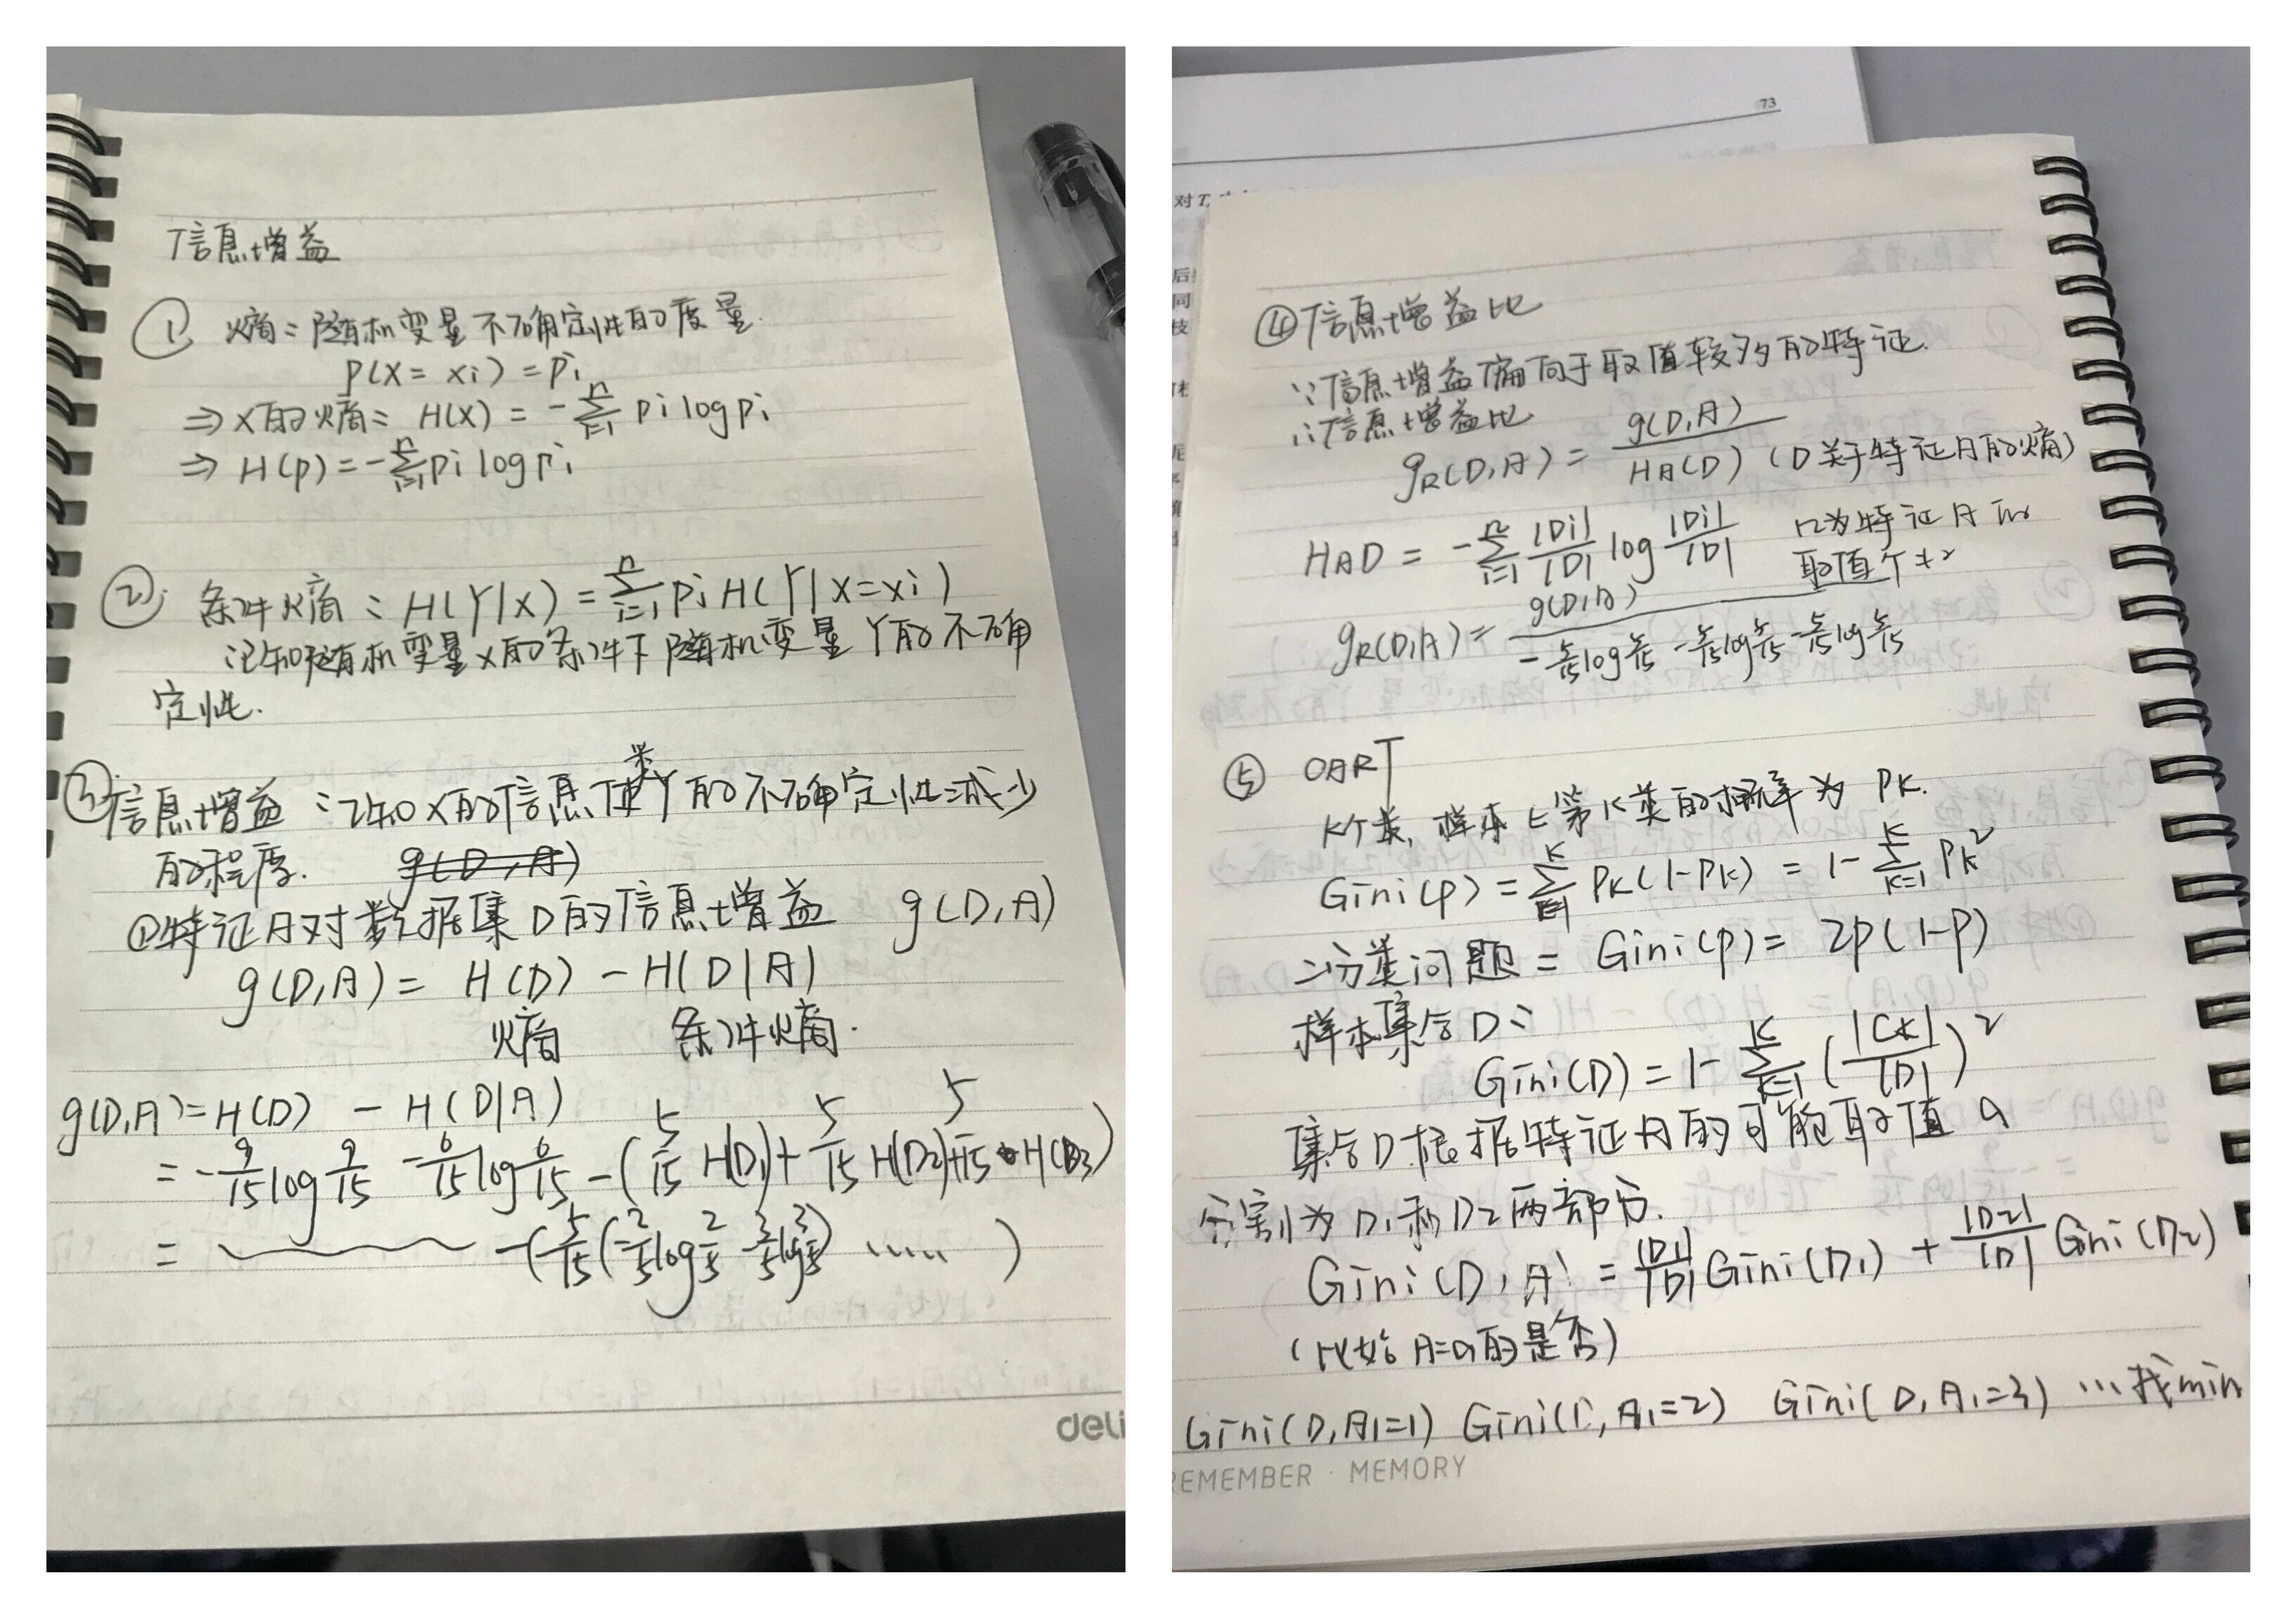 信息增益
① 熵：随机变量不确定性的度量.
P(X=xi)=Pi
⇒ X的熵: H(X) = -∑_{i=1}^{n} Pi log Pi
⇒ H(P) = -∑_{i=1}^{n} Pi log Pi
② 条件熵: H(Y|X) = ∑_{i=1}^{n} Pi H(Y|X=xi)
已知随机变量X的条件下随机变量Y的不确
定性.
③ 信息增益：已知X的信息使类Y的不确定性减少
的程度. g(D,A)
①特征A对数据集D的信息增益 g(D,A)
g(D,A) = H(D) - H(D|A)
熵 条件熵.
g(D,A) = H(D) - H(D|A)
= -9/15 log 9/15 - 6/15 log 6/15 - (5/15 H(D1) + 5/15 H(D2) + 5/15 H(D3))
= -(5/15(-2/5 log 2/5 - 3/5 log 3/5) ……)
deli
73
对T
后
同
枝
④信息增益比
∵信息增益偏向于取值较多的特征.
∴信息增益比
gR(D,A) = g(D,A) / HA(D) (D关于特征A的熵)
HAD = -∑_{i=1}^{n} |Di|/|D| log |Di|/|D| n为特征A的
取值个数
gR(D,A) = g(D,A) / (-5/15 log 5/15 - 5/15 log 5/15 - 5/15 log 5/15)
⑤ CART
K个类, 样本∈第K类的概率为 PK.
Gini(P) = ∑_{k=1}^{K} PK(1-PK) = 1-∑_{k=1}^{K} PK²
二分类问题: Gini(P) = 2P(1-P)
样本集合D:
Gini(D) = 1-∑_{k=1}^{K} (|Ck|/|D|)²
集合D根据特征A的可能取值a
分割为D1和D2两部分.
Gini(D,A) = |D1|/|D| Gini(D1) + |D2|/|D| Gini(D2)
(比如 A=a的是否)
Gini(D,A1=1) Gini(D,A1=2) Gini(D,A1=3) …找min
REMEMBER · MEMORY